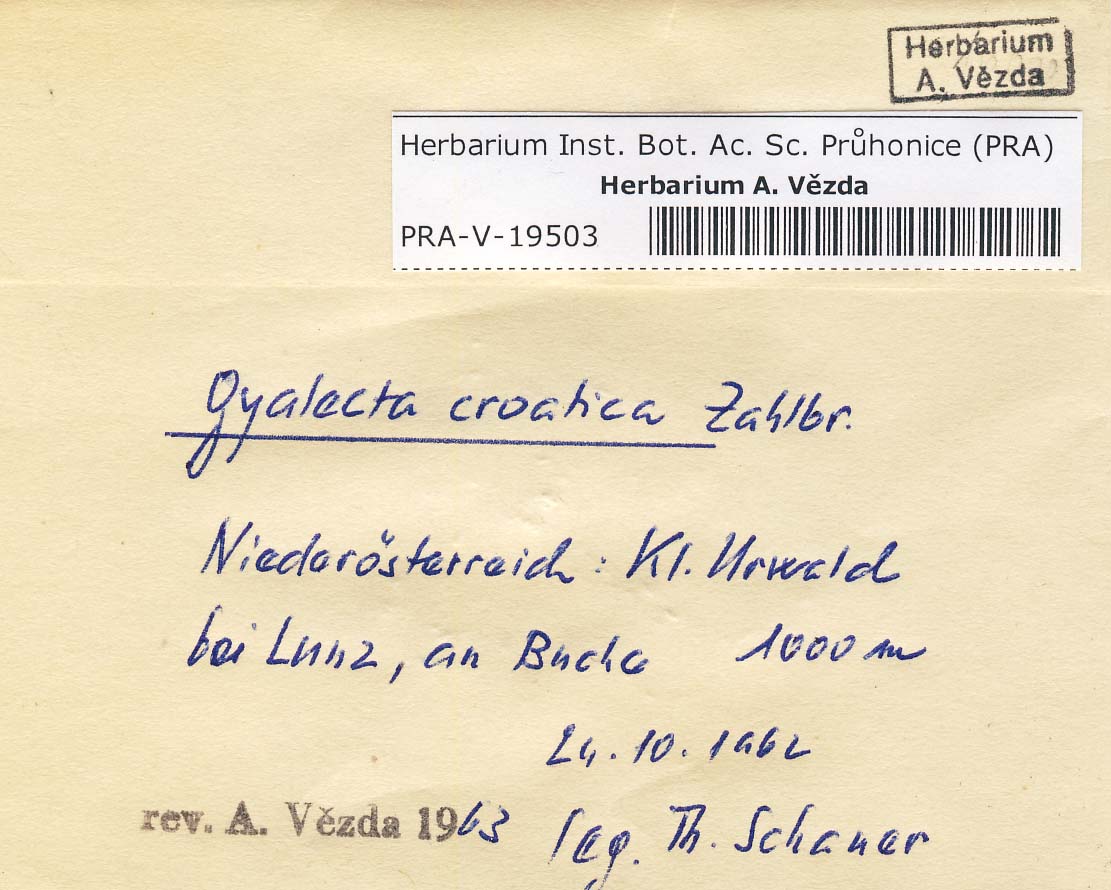 Herbarium
A. Vězda
Herbarium Inst. Bot. Ac. Sc. Průhonice (PRA)
Herbarium A. Vězda
PRA-V-19503
Gyalecta croatica Zahlbr.
Niederösterreich : Kl. Urwald
bei Lunz, an Buche 1000 m
24. 10. 1962
rev. A. Vězda 1963
leg. Th. Schauer